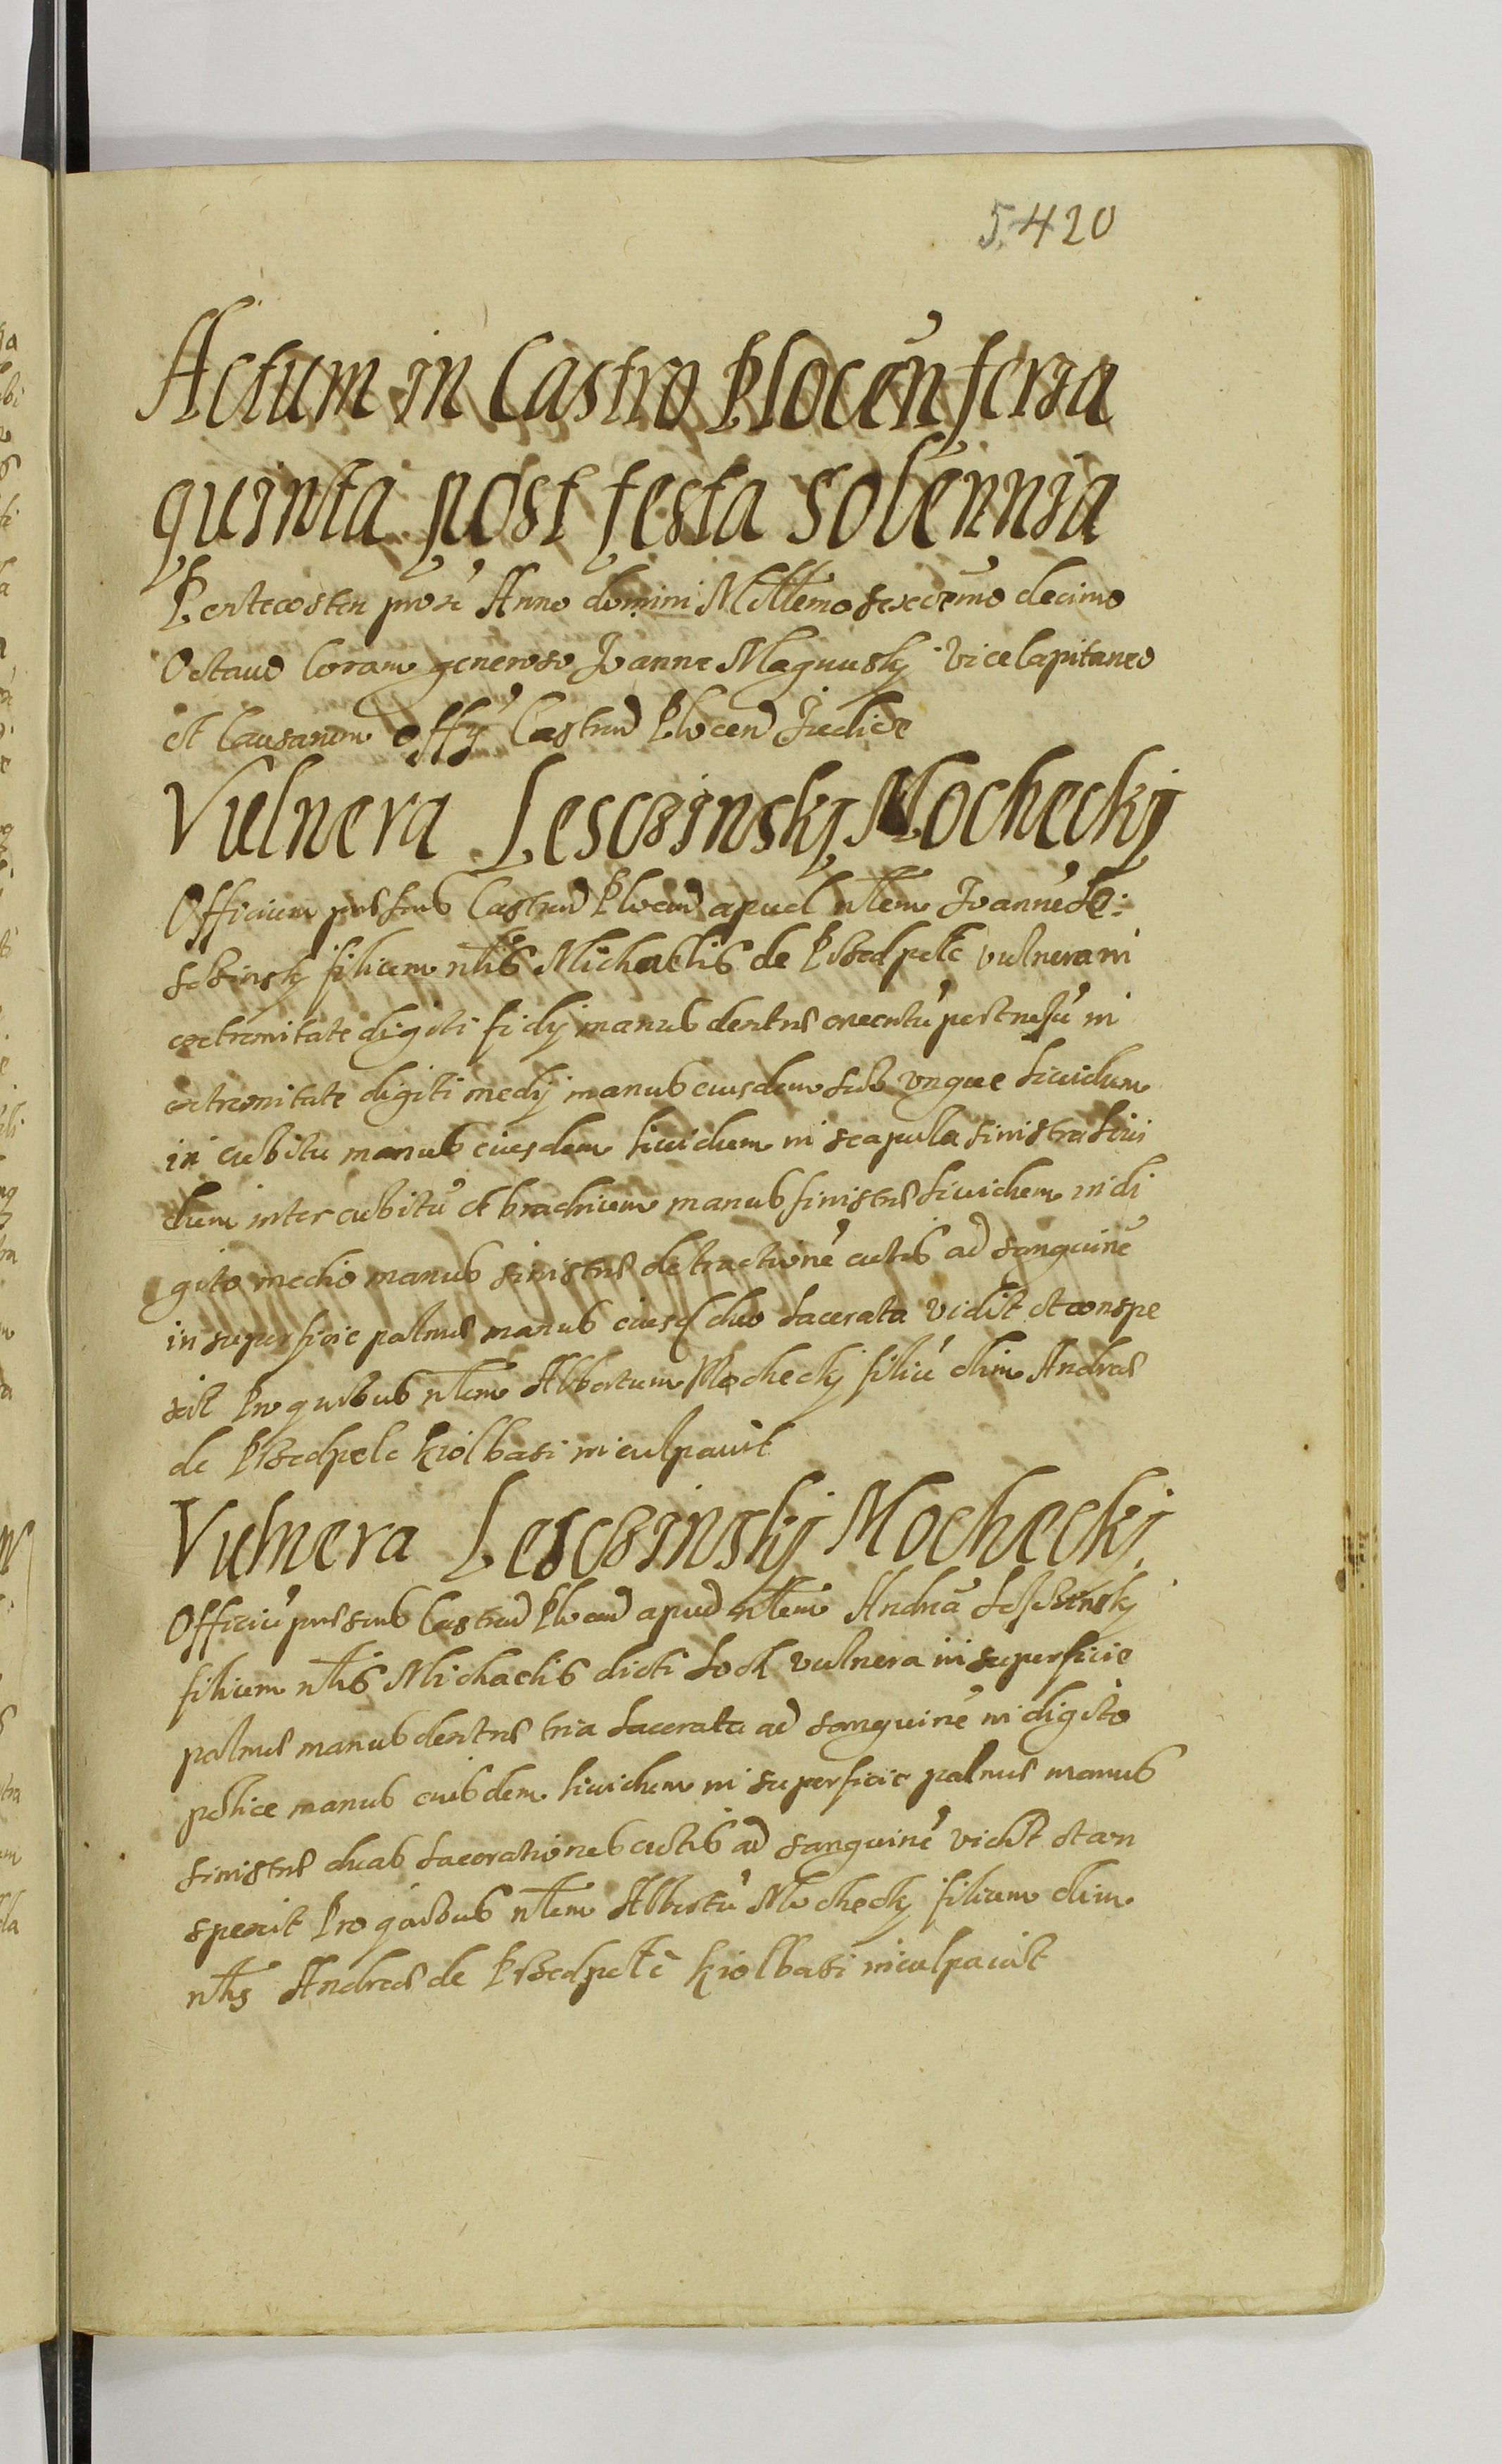 5.420
Actum in Castro Plocen feria
quinta post festa solennia
Pentecosten proxe Anno domini Millemo sexcemo decimo
Octauo Coram generoso Joanne Magnusky ViceCapitaneo
et Causarum offy Castren Plocen Judice
Vulnera Lesczinsky Mochecky
Officium presens Castren Plocen apud nlem Joanne Le:
sczinsky filium nlis Michaelis de vulnera in
extremitate digiti manus dextre in
extremitate digiti medy manus eiusdem sub vngue liuidum
in cubitu manus eiusdem liuidum in scapula sinistra liui
dum inter cubitu et brachium manus sinistre liuidum in di
gito medio manus sinistre detractione cutis ad sanguine
in superficie palme manus eiusd duo lacerata vidit et conspe
xit Pro quibus nlem Albertum Mochecky filiu olim Andree
de Kiolbasi inculpauit
Vulnera Lesczinsky Mochecky
Officiu presens Castren Plocen apud nlem Andrea Lesczinsky
filium nlis Michaelis dicti Lock vulnera in superficie
palme manus dextre tria lacerata ad sanguine in digito
police manus eiusdem liuidum in superficie palme manus
sinistre duas lacerationes cutis ad sanguine vidit et con
spexit Pro quibus nlem Albertu Mochecky filium olim
nlis Andree de Kiolbasi inculpauit